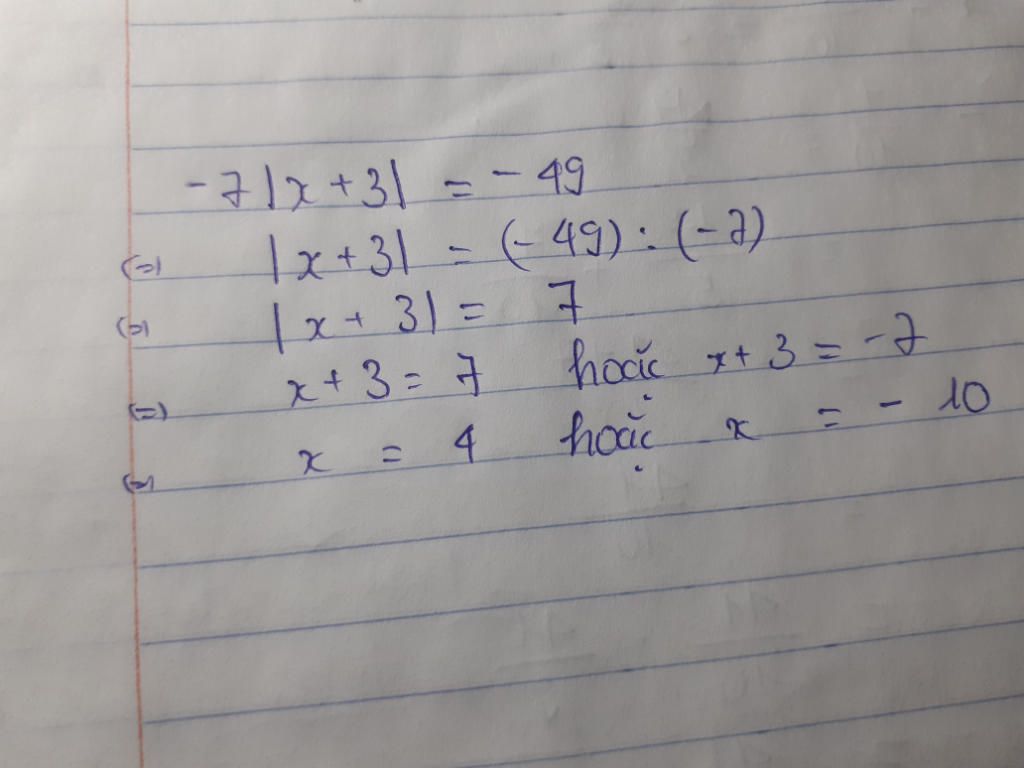 -7|x+3| = -49
(=) |x+3| = (-49) : (-7)
(=) |x+3| = 7
(=) x+3 = 7 hoặc x+3 = -7
(=) x = 4 hoặc x = -10